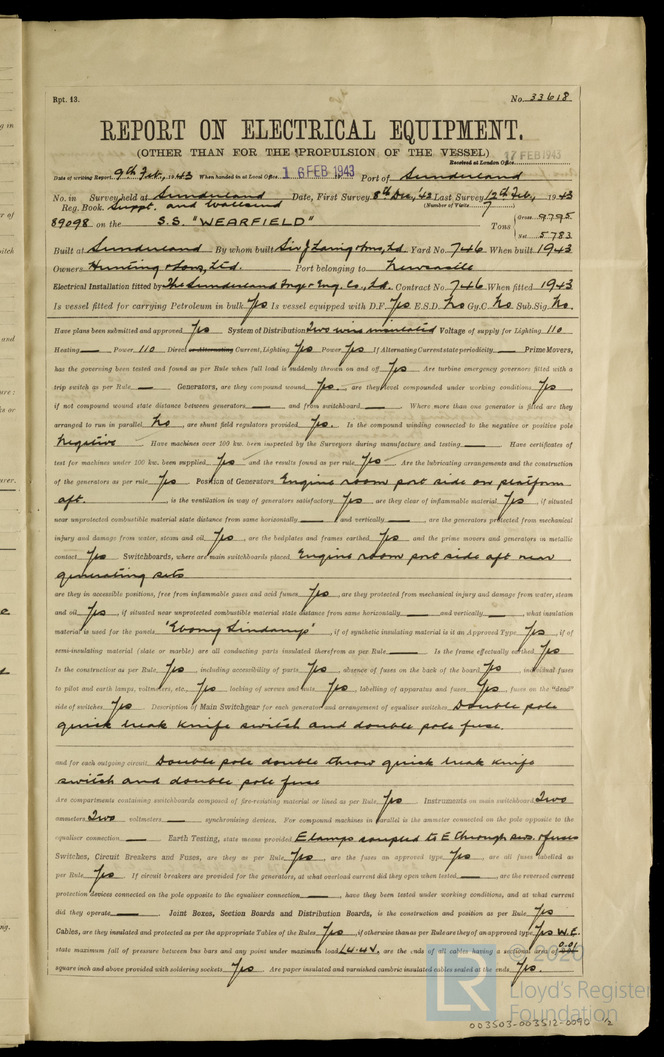 Rpt. 13.
No. 33618
REPORT ON ELECTRICAL EQUIPMENT.
(OTHER THAN FOR THE PROPULSION OF THE VESSEL)
17 FEB 1943
Received at London Office
Date of writing Report 9th Feb, 1943 When handed in at Local Office 16 FEB 1943 Port of Sunderland
No. in Survey held at Sunderland Date, First Survey 8th Dec, 42 Last Survey 12th Feb, 1943
Reg. Book. Suppt. and Wallsend (Number of Visits 7)
89098 on the S.S. "WEARFIELD" Tons Gross 9795
Net 5783
Built at Sunderland By whom built Sir J. Laing & Sons, Ld. Yard No. 746 When built 1943
Owners Hunting & Sons, Ltd. Port belonging to Newcastle
Electrical Installation fitted by The Sunderland Forge & Eng. Co., Ld. Contract No. 746 When fitted 1943
Is vessel fitted for carrying Petroleum in bulk Yes Is vessel equipped with D.F. Yes E.S.D. No Gy.C. No Sub.Sig. No.
Have plans been submitted and approved Yes System of Distribution Two wire insulated Voltage of supply for Lighting 110
Heating — Power 110 Direct or Alternating Current, Lighting Yes Power Yes If Alternating Current state periodicity — Prime Movers,
has the governing been tested and found as per Rule when full load is suddenly thrown on and off Yes Are turbine emergency governors fitted with a
trip switch as per Rule — Generators, are they compound wound Yes, are they level compounded under working conditions Yes,
if not compound wound state distance between generators — and from switchboard — Where more than one generator is fitted are they
arranged to run in parallel No, are shunt field regulators provided Yes. Is the compound winding connected to the negative or positive pole
Negative Have machines over 100 kw. been inspected by the Surveyors during manufacture and testing — Have certificates of
test for machines under 100 kw. been supplied Yes and the results found as per rule Yes Are the lubricating arrangements and the construction
of the generators as per rule Yes Position of Generators Engine room port side on platform
aft. , is the ventilation in way of generators satisfactory Yes, are they clear of inflammable material Yes, if situated
near unprotected combustible material state distance from same horizontally — and vertically — , are the generators protected from mechanical
injury and damage from water, steam and oil Yes, are the bedplates and frames earthed Yes and the prime movers and generators in metallic
contact Yes Switchboards, where are main switchboards placed Engine room port side aft near
generating sets
are they in accessible positions, free from inflammable gases and acid fumes Yes, are they protected from mechanical injury and damage from water, steam
and oil Yes, if situated near unprotected combustible material state distance from same horizontally — and vertically — , what insulation
material is used for the panels 'Ebony Sindanyo', if of synthetic insulating material is it an Approved Type Yes, if of
semi-insulating material (slate or marble) are all conducting parts insulated therefrom as per Rule — Is the frame effectually earthed Yes
Is the construction as per Rule Yes, including accessibility of parts Yes, absence of fuses on the back of the board Yes, individual fuses
to pilot and earth lamps, voltmeters, etc. Yes locking of screws and nuts Yes, labelling of apparatus and fuses Yes, fuses on the "dead"
side of switches Yes Description of Main Switchgear for each generator and arrangement of equaliser switches Double pole
quick break knife switch and double pole fuse.
and for each outgoing circuit Double pole double throw quick break knife
switch and double pole fuse
Are compartments containing switchboards composed of fire-resisting material or lined as per Rule Yes Instruments on main switchboard Two
ammeters Two voltmeters — synchronising devices. For compound machines in parallel is the ammeter connected on the pole opposite to the
equaliser connection — Earth Testing, state means provided E lamps coupled to E through sws. & fuses
Switches, Circuit Breakers and Fuses, are they as per Rule Yes, are the fuses an approved type Yes, are all fuses labelled as
per Rule Yes If circuit breakers are provided for the generators, at what overload current did they open when tested — , are the reversed current
protection devices connected on the pole opposite to the equaliser connection — , have they been tested under working conditions, and at what current
did they operate — Joint Boxes, Section Boards and Distribution Boards, is the construction and position as per Rule Yes
Cables, are they insulated and protected as per the appropriate Tables of the Rules Yes, if otherwise than as per Rule are they of an approved type Yes W.E.
state maximum fall of pressure between bus bars and any point under maximum load L 4.4V., are the ends of all cables having a sectional area of 0.01
square inch and above provided with soldering sockets Yes Are paper insulated and varnished cambric insulated cables sealed at the ends Yes.
LR
© 2020
Lloyd's Register
Foundation
003503-003512-0090 1/2